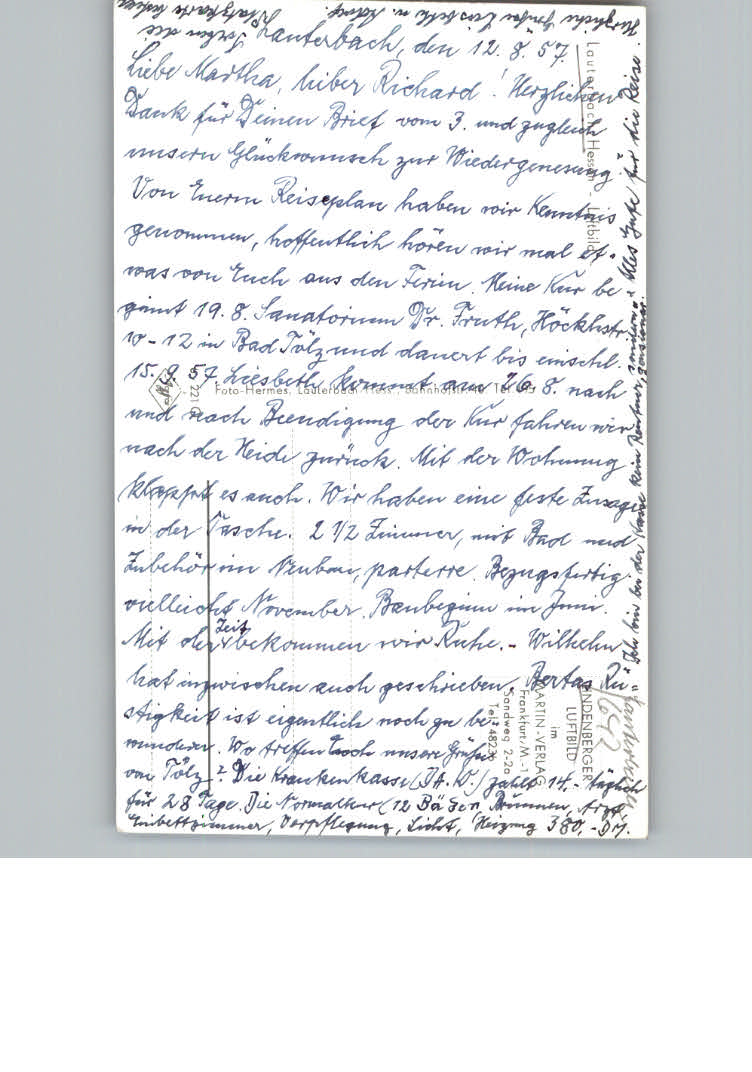 Lauterbach, den 12. 8. 57.
Liebe Martha, lieber Richard! Herzlichen
Dank für Deinen Brief vom 3. und zugleich
unsern Glückwunsch zur Wiedergenesung
Von Euerm Reiseplan haben wir Kenntnis
genommen, hoffentlich hören wir mal et-
was von Euch aus den Ferien. Meine Kur be-
ginnt 19. 8. Sanatorium Dr. Fruth, Höckhstr.
10-12 in Bad Tölz und dauert bis einschl.
15. 9. 57. Liesbeth kommt am 26. 8. nach
und nach Beendigung der Kur fahren wir
nach der Heide zurück. Mit der Wohnung
klappt es auch. Wir haben eine feste Zusage
in der Tasche. 2 1/2 Zimmer, mit Bad und
Zubehör im Neubau, parterre. Bezugsfertig
vielleicht November. Baubeginn im Juni.
Mit der Zeit bekommen wir Ruhe. - Wilhelm
hat inzwischen auch geschrieben. Bertas Rü-
stigkeit ist eigentlich noch zu be-
wundern. Wo treffen Euch unsere Grüße
von Tölz? Die Krankenkasse (DA.K.) zahlt 14.- täglich
für 28 Tage. Die Normalkur (12 Bäder, Brunnen, Arzt,
Einbettzimmer, Verpflegung, Licht, Heizung 380,- DM.
Ich bin bei der Kasse kein Rentner, sondern
Alles Gute für die Reise.
Herzliche Grüße Liesbeth u.
Lauterbach Hessen - Luftbild
Foto-Hermes, Lauterbach Hess., Bahnhofstr.
221
LINDENBERGER
LUFTBILD
im
MARTIN-VERLAG
Frankfurt/M.-1
Sandweg 2-2a
Tel. 48236